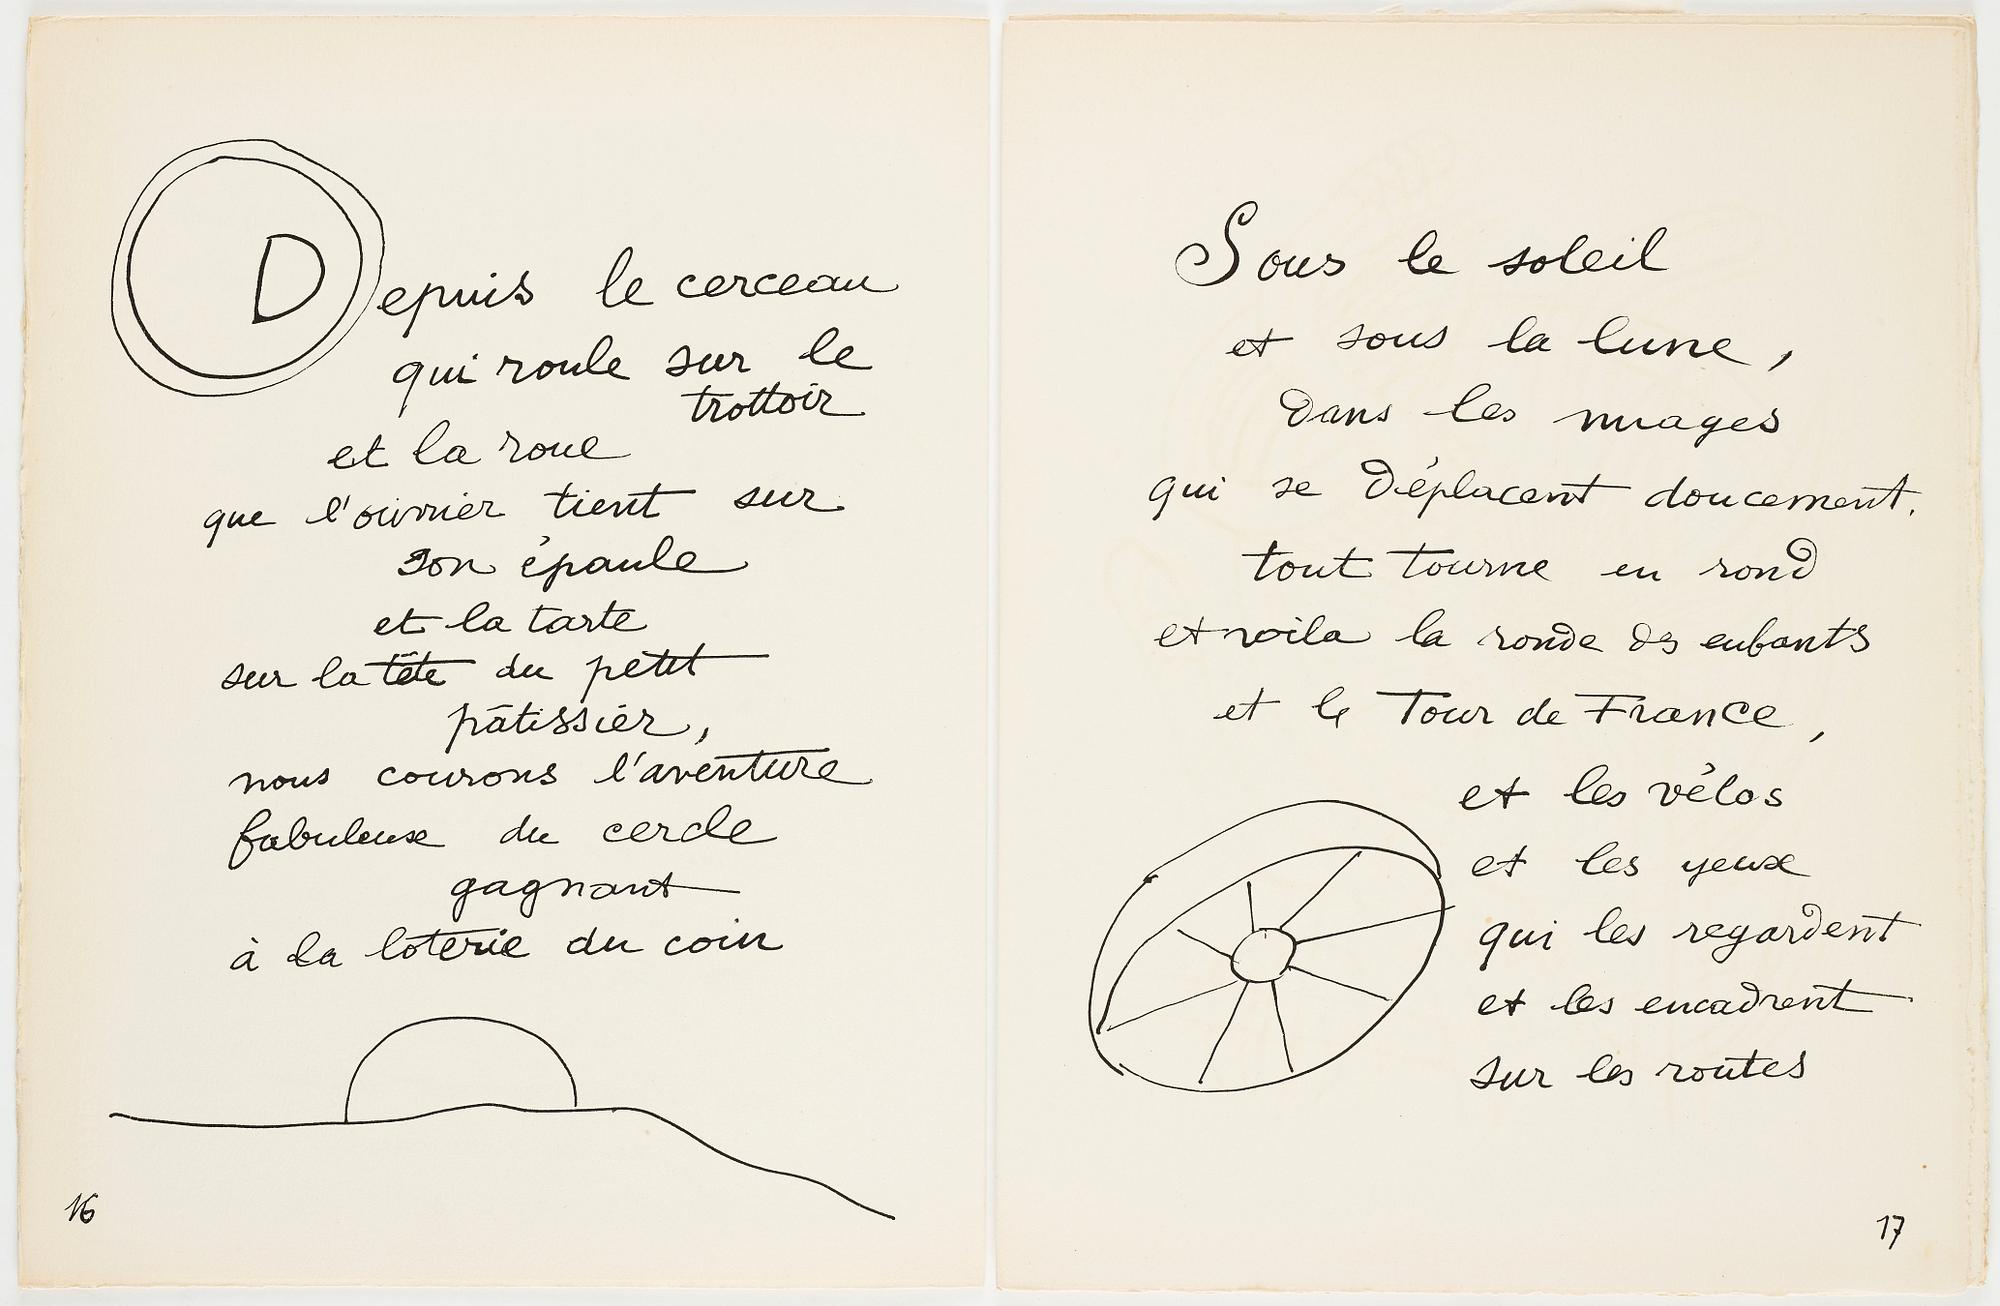 Depuis le cerceau
qui roule sur le
trottoir
et la roue
que l'ouvrier tient sur
son épaule
et la tarte
sur la tête du petit
pâtissier,
nous courons l'aventure
fabuleuse du cercle
gagnant
à la loterie du coin
16
Sous le soleil
et sous la lune,
dans les nuages
qui se déplacent doucement.
tout tourne en rond
et voila la ronde des enfants
et le Tour de France,
et les vélos
et les yeux
qui les regardent
et les encadrent
sur les routes
17